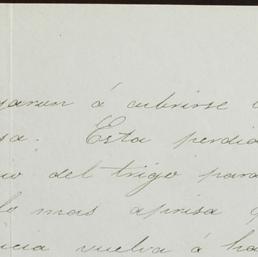 garon á cubrirse
sa. Esta perdio
del trigo para
lo mas aprisa
cia vuelva á ha